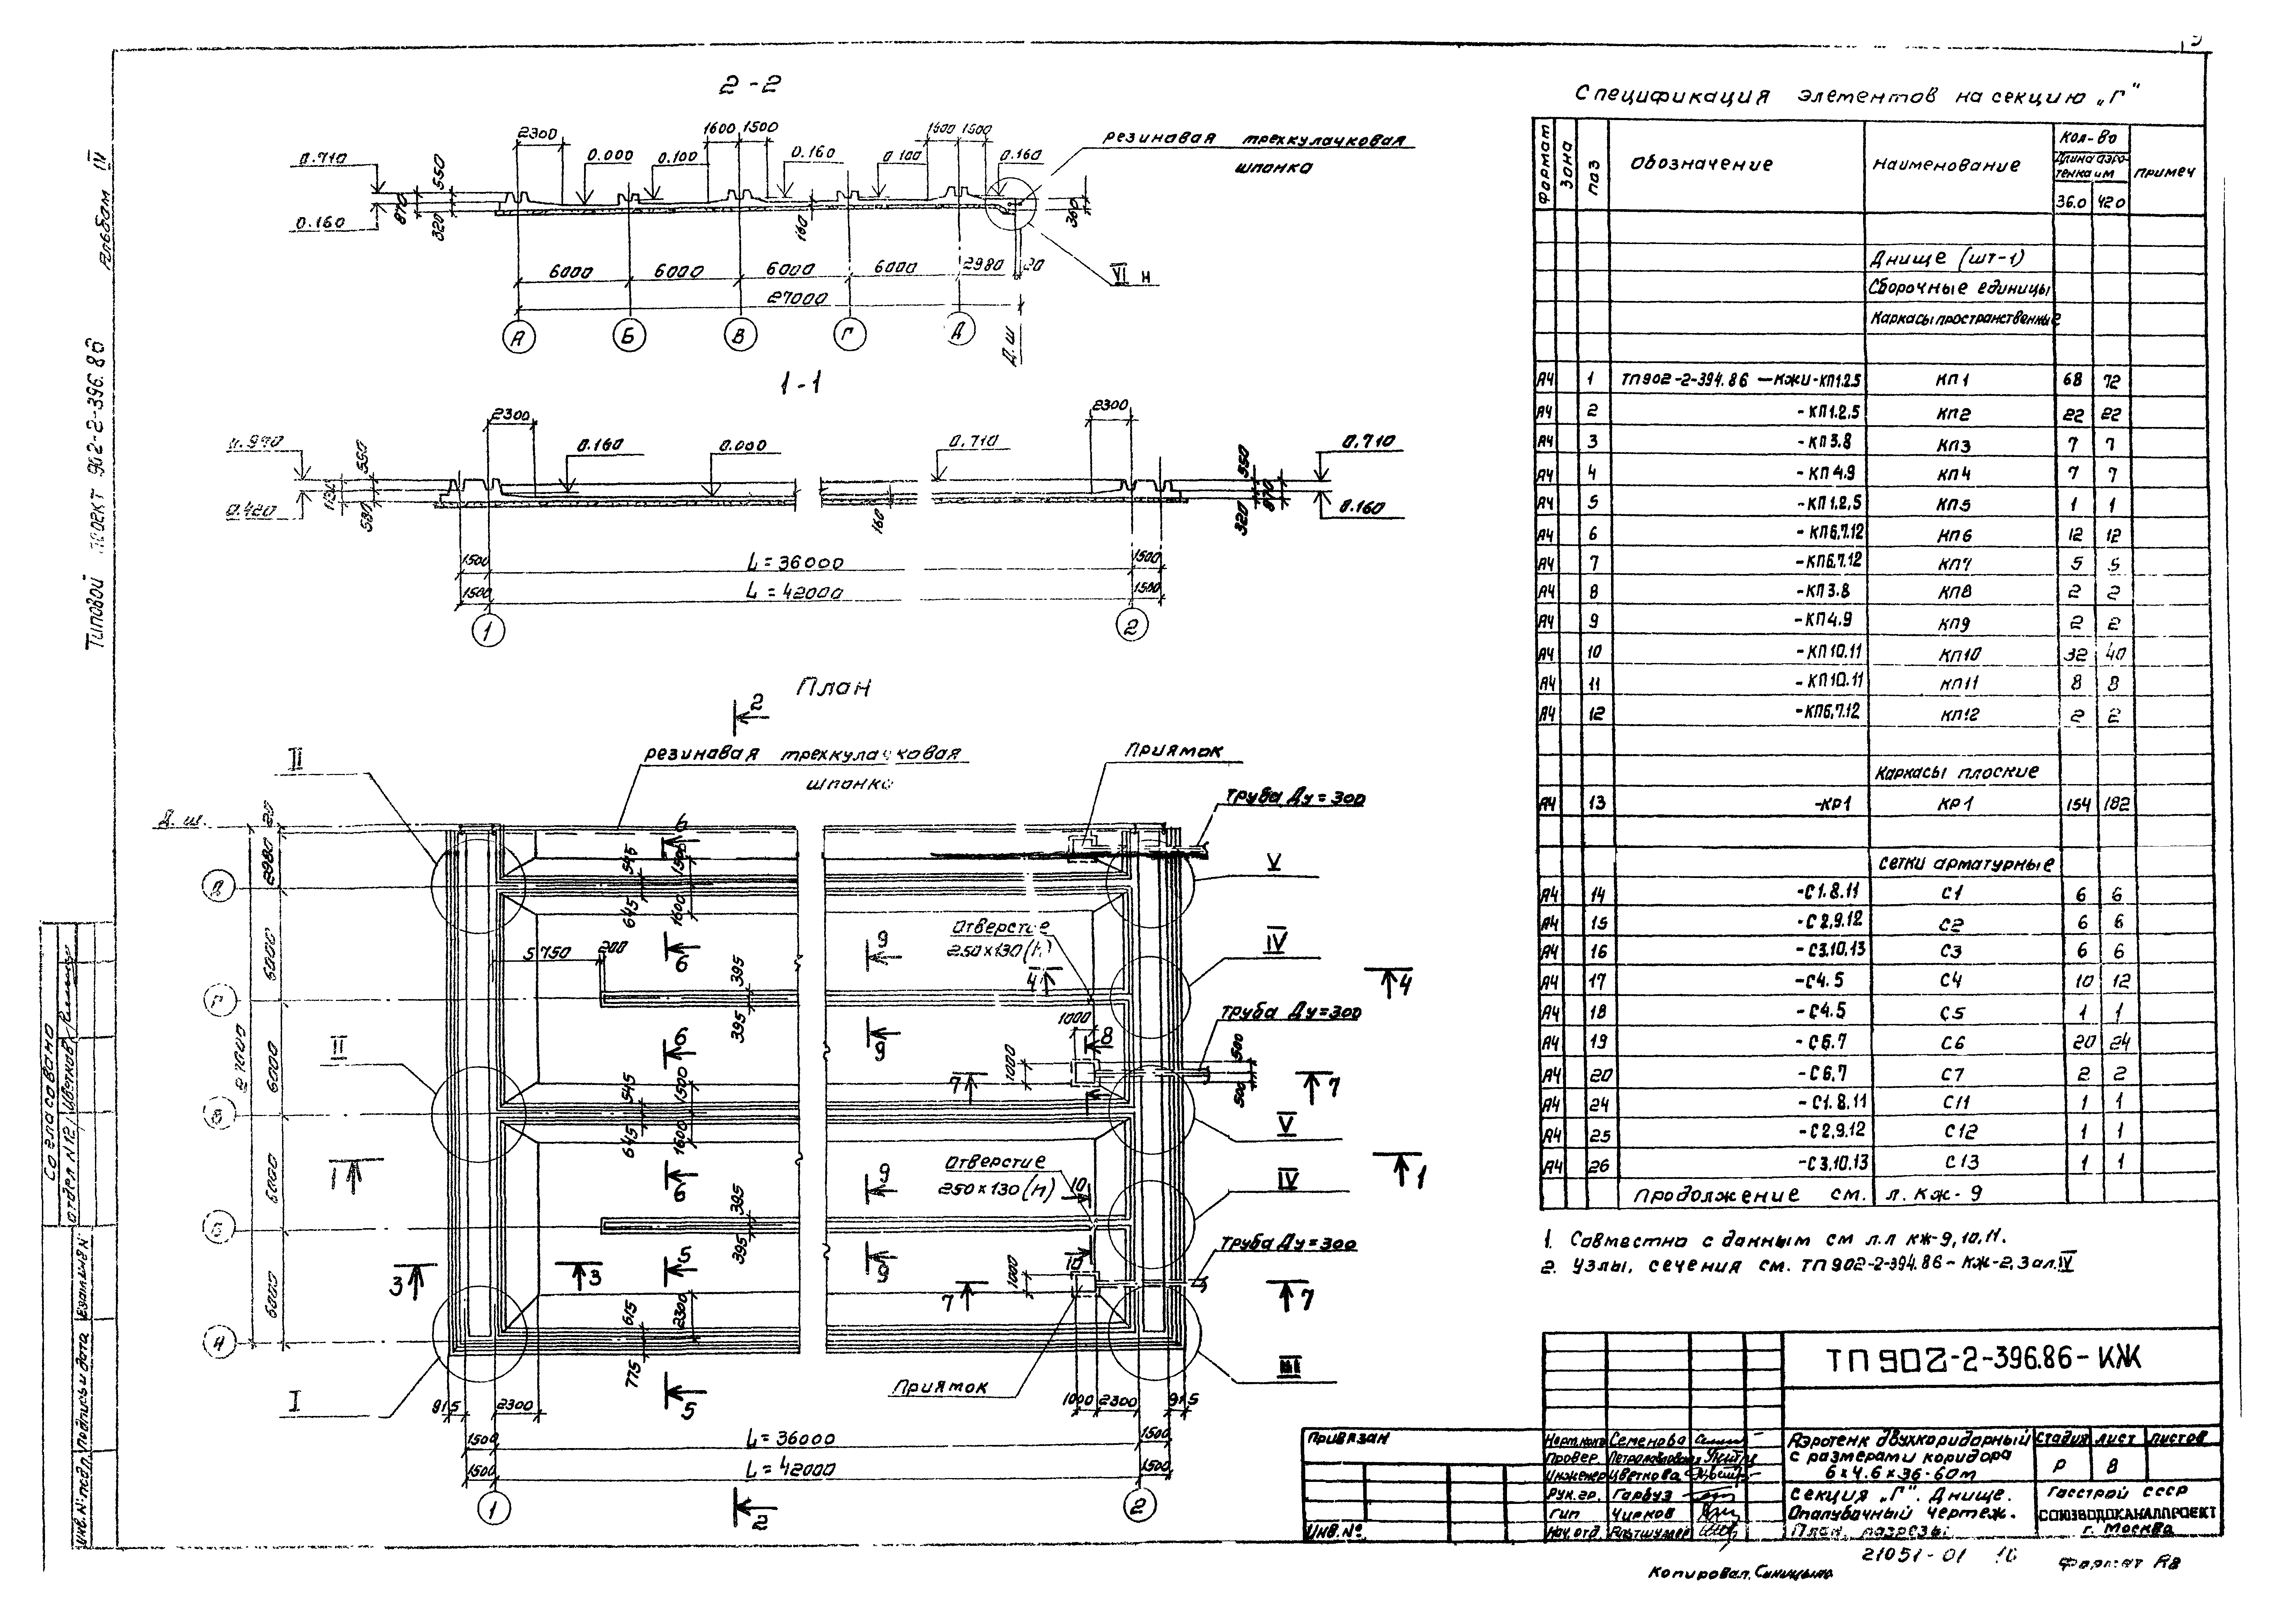 2-2
2300
1600 1500
1600 1500
резиновая трехкулачковая
шпонка
0.710
0.160
550
870
320
0.000
0.100
0.160
0.100
0.160
160
360
6000 6000 6000 6000 2980 20
27000
VI н
А Б В Г Д
Д.ш.
1-1
2300
2300
0.970
0.420
550
580
0.160
0.000
0.710
0.710
0.160
550
870
320
160
1500 L = 36000 1500
1500 L = 42000 1500
1 2
План
2
резиновая трехкулачковая
шпонка
Приямок
труба Ду=300
II
Д.ш.
2980 20
6000
6000
6000
6000
27000
Д
Г
В
Б
А
6
545 1500
645 1600
6
5750 200
9
Отверстие
250×130(h)
4
4
V
IV
395
395
6
9
1000
8
труба Ду=300
500
500
1000
7
7
II
545 1500
645 1600
V
1
1
6
9
Отверстие
250×130(h)
10
IV
395
395
9
10
труба Ду=300
3
3
5
1000
7
7
615 2300
775
5
Приямок
III
I
915 2300
1000 2300 915
1500 L = 36000 1500
1500 L = 42000 1500
1 2
2
Спецификация элементов на секцию „Г"
Формат Зона Поз Обозначение Наименование Кол-во Примеч
Длина аэро-
тенка в м
36.0 42.0
Днище (шт-1)
Сборочные единицы
Каркасы пространственные
А4 1 ТП902-2-394.86 -КЖИ-КП1.2.5 КП1 68 72
А4 2 -КП1.2.5 КП2 22 22
А4 3 -КП3.8 КП3 7 7
А4 4 -КП4.9 КП4 7 7
А4 5 -КП1.2.5 КП5 1 1
А4 6 -КП6.7.12 КП6 12 12
А4 7 -КП6.7.12 КП7 5 5
А4 8 -КП3.8 КП8 2 2
А4 9 -КП4.9 КП9 2 2
А4 10 -КП10.11 КП10 32 40
А4 11 -КП10.11 КП11 8 8
А4 12 -КП6.7.12 КП12 2 2
Каркасы плоские
А4 13 -КР1 КР1 154 182
Сетки арматурные
А4 14 -С1.8.11 С1 6 6
А4 15 -С2.9.12 С2 6 6
А4 16 -С3.10.13 С3 6 6
А4 17 -С4.5 С4 10 12
А4 18 -С4.5 С5 1 1
А4 19 -С6.7 С6 20 24
А4 20 -С6.7 С7 2 2
А4 24 -С1.8.11 С11 1 1
А4 25 -С2.9.12 С12 1 1
А4 26 -С3.10.13 С13 1 1
Продолжение см. л. КЖ-9
1. Совместно с данным см л.л КЖ-9,10,11.
2. Узлы, сечения см. ТП902-2-394.86-КЖ-2,3 ал.IV
ТП902-2-396.86-КЖ
Привязан
Инв.№
Норм.конт Семенова
Провер.
Инженер Цветкова
Рук.гр. Гарбуз
Гип Чирков
Нач.отд.
Аэротенк двухкоридорный
с размерами коридора
6×4.6×36-60м
Стадия Лист Листов
Р 8
Секция „Г". Днище.
Опалубочный чертеж.
План, разрезы
Госстрой СССР
СОЮЗВОДОКАНАЛПРОЕКТ
г. Москва
21051-01 10
Копировал. Синицына
Формат А2
Типовой проект 902-2-396.86 Альбом III
Согласовано
отдел №12 Цветков
Инв.№ подл. Подпись и дата Взам.инв.№